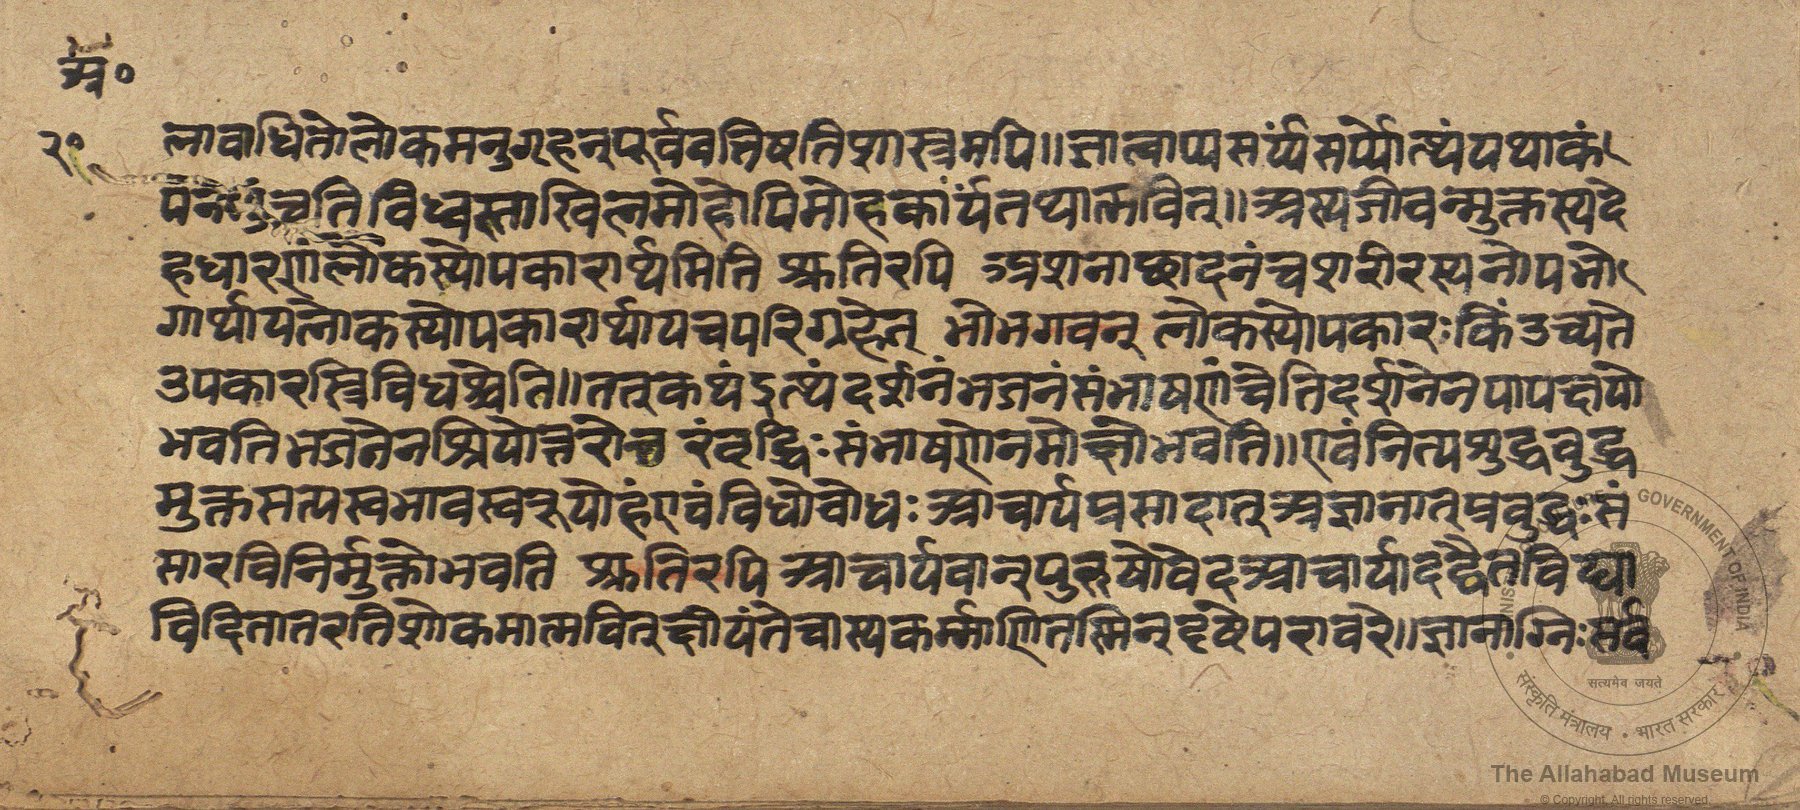 अ॰
२०
लावाधितोलोकमनुगृहन्पूर्ववत्तिष्ठतिशास्त्रमपि॥ज्ञात्वाप्यसर्प्यंसर्प्योत्थंयथाकं
पन मुंचतिविध्वस्ताखिलमोहोपिमोहकार्यंतथात्मवित्॥अस्यजीवन्मुक्तस्यदे
हधारणंलोकस्योपकारार्थमिति श्रुतिरपि ऽअशनाच्छादनंचशरीरस्यनोपभो
गार्थायलोकस्योपकारार्थायचपरिगृह्णेत् भोभगवन् लोकस्योपकारःकिंउच्यते
उपकारस्त्रिविधश्चेति॥तत्कथंइत्थंदर्शनंभजनंसंभाषणंचेतिदर्शनेनपापक्षयो
भवतिभजनेनश्रियोत्तरोत्त रंवृद्धिःसंभाषणेनमोक्षोभवति॥एवंनित्यशुद्धबुद्ध
मुक्तसत्यस्वभावस्वरूपोहंएवंविधोबोधःआचार्यप्रसादात्अज्ञानात्प्रबुद्धःसं
सारविनिर्मुक्तोभवति श्रुतिरपि आचार्यवान्पुरुषोवेदआचार्यादद्वैतविद्या
विदितातरतिशोकमात्मवित्क्षीयंतेचास्यकर्म्माणितस्मिन्दृष्टेपरावरे॥ज्ञानाग्निःसर्व
GOVERNMENT OF INDIA
सत्यमेव जयते
संस्कृति मंत्रालय • भारत सरकार
The Allahabad Museum
© Copyright. All rights reserved.